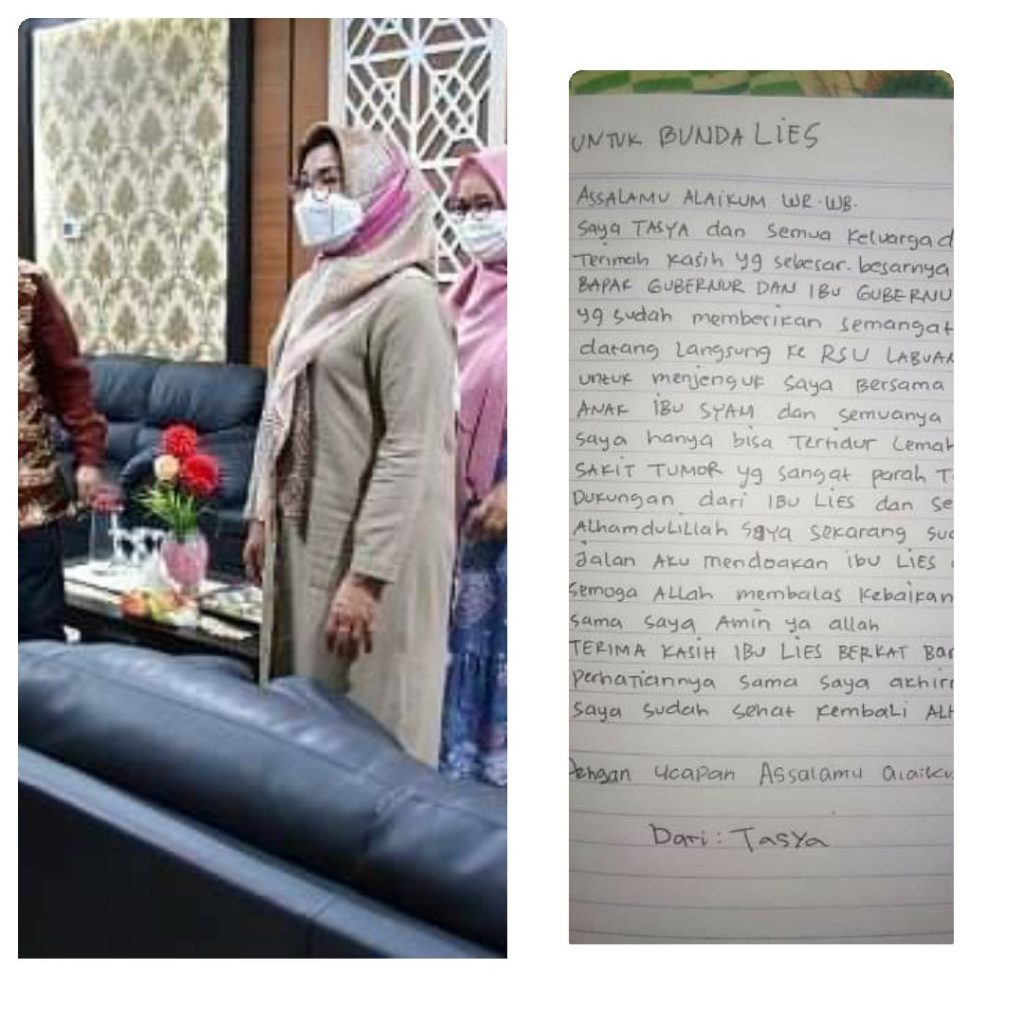 UNTUK BUNDA LIES
ASSALAMU ALAIKUM WR.WB.
Saya TASYA dan semua keluarga d
Terimah kasih yg sebesar.besarnya
BAPAK GUBERNUR DAN IBU GUBERNU
yg sudah memberikan semangat
datang Langsung ke RSU LABUAN
untuk menjenguk saya Bersama
ANAK IBU SYAM dan semuanya
saya hanya bisa Tertidur Lemah
SAKIT TUMOR yg sangat parah T
Dukungan dari IBU LIES dan se
Alhamdulillah saya sekarang sud
Jalan Aku mendoakan ibu LIES
semoga ALLah membalas kebaikan
sama saya Amin ya allah
TERIMA KASIH IBU LIES BERKAT Ban
perhatiannya sama saya akhirn
saya sudah sehat kembali ALH
Dengan ucapan Assalamu alaiku
Dari: Tasya